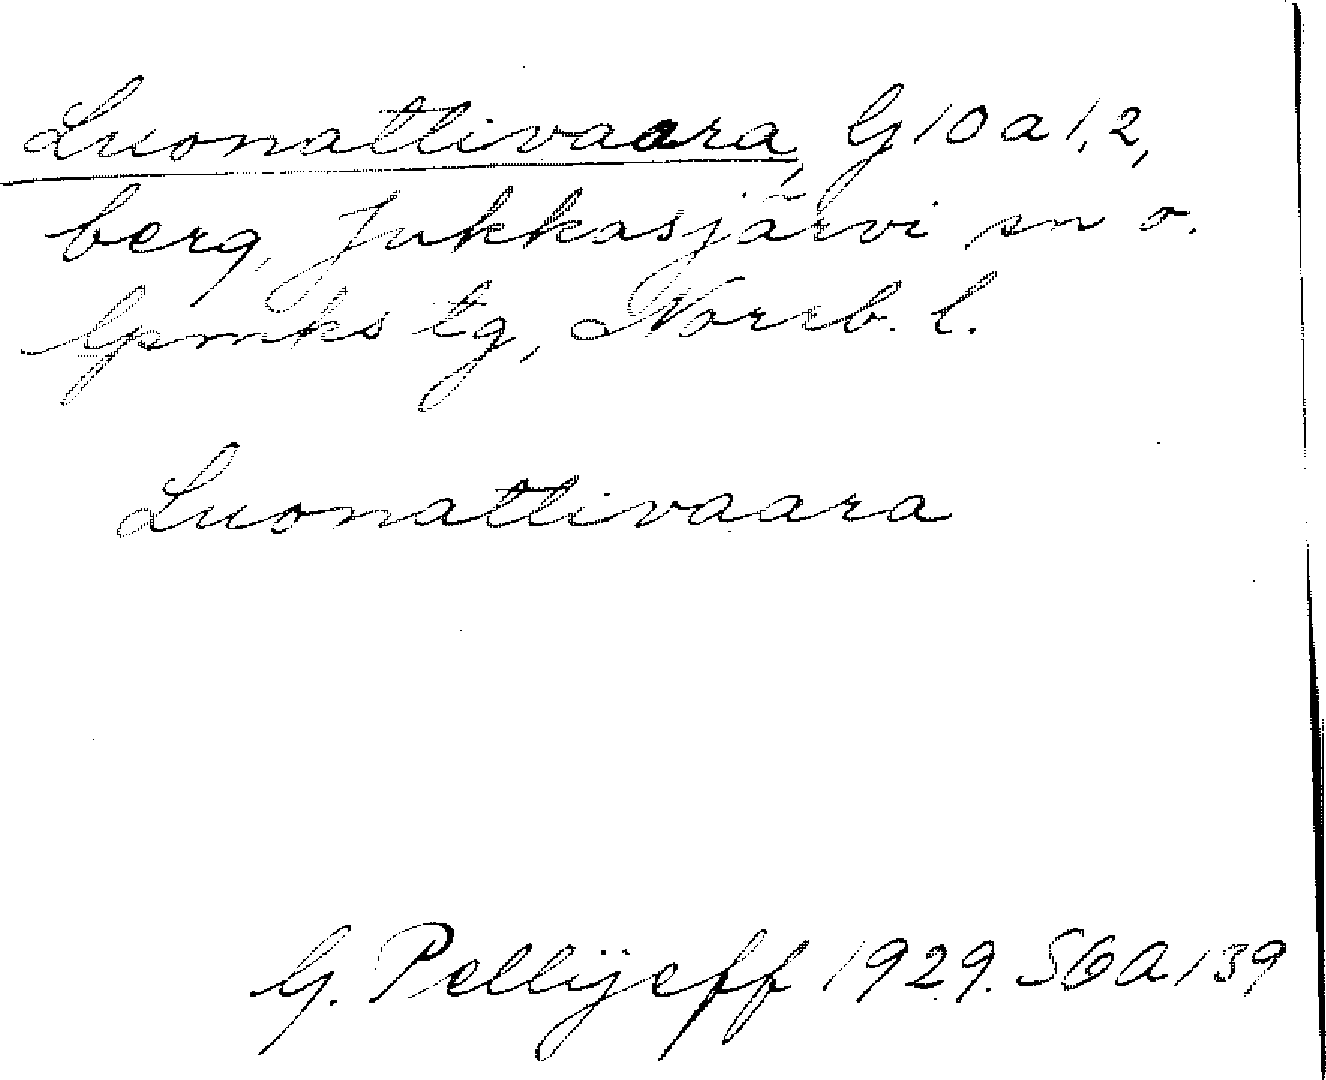 Luonattivaara, G 10 a 1, 2,
berg, Jukkasjärvi sn o.
lpmks tg, Norrb. l.
Luonattivaara
G. Pellijeff 1929. S6A 139